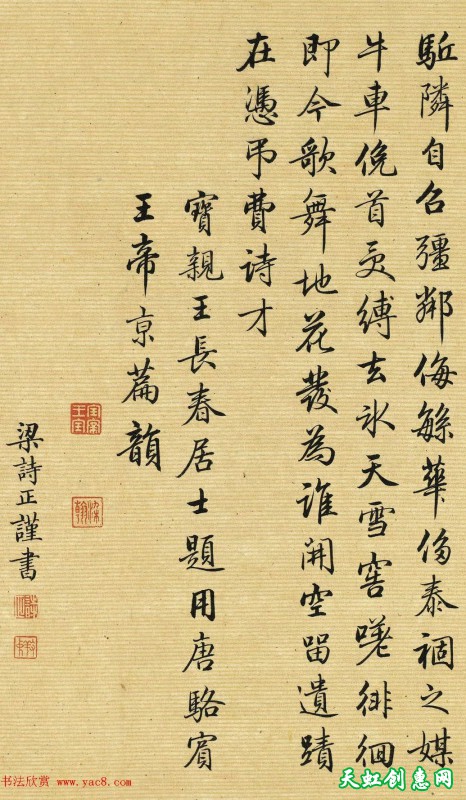 駈隣自召彊鄰侮緐華侈泰禍之媒
牛車俛首受縛去氷天雪窖嗟徘徊
即今歌舞地花發為誰開空留遺蹟
在憑弔費詩才
寶親王長春居士題用唐駱賓
王帝京篇韻
梁詩正謹書
书法欣赏 www.yac8.com
天虹创惠网